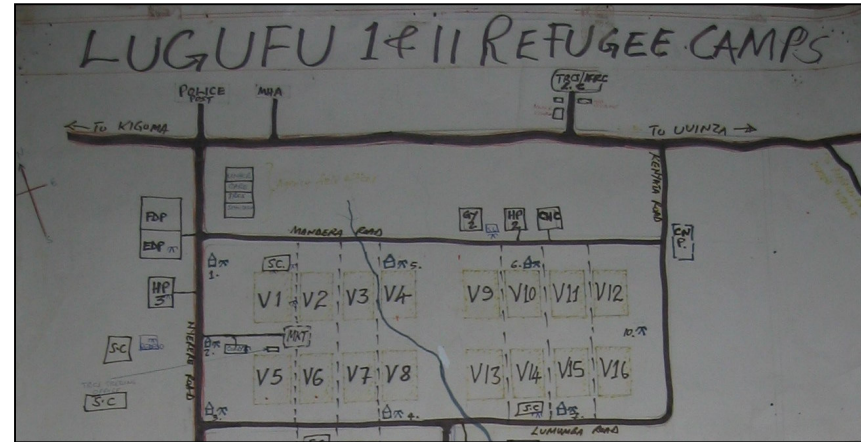 LUGUFU 1 & 11 REFUGEE CAMPS
POLICE
POST
MHA
TRCS/IFRC
← TO KIGOMA
TO UVINZA →
KENYATA ROAD
FDP
EDP
MANDERA ROAD
HP
2
CHC
CN
P.
1.
S.C.
5.
6.
HP
3
V1 V2 V3 V4 V9 V10 V11 V12
NYERERE ROAD
2.
MKT
10.
S.C
V5 V6 V7 V8 V13 V14 V15 V16
S.C
3.
4.
S.C
LUMUMBA ROAD